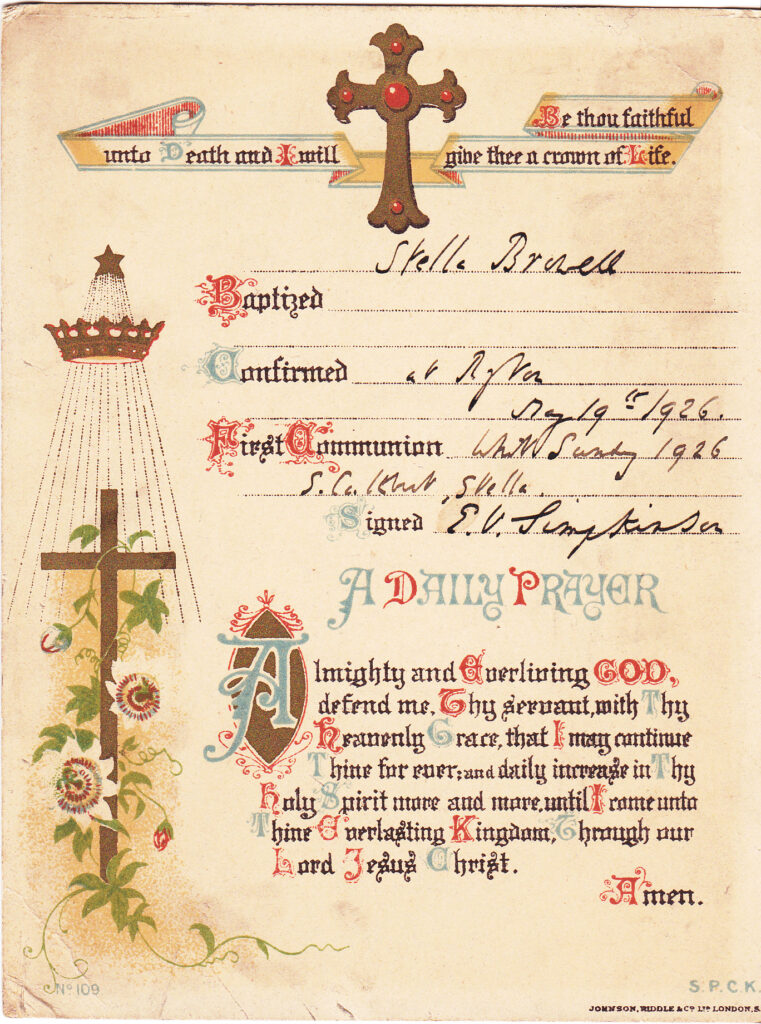 Be thou faithful
unto Death and I will give thee a crown of Life.
Stella Browell
Baptized
Confirmed at Ryton
May 19th 1926.
First Communion Whit Sunday 1926
Stella.
Signed E.V. Simpkinson
A DAILY PRAYER
Almighty and Everliving GOD,
defend me, Thy servant, with Thy
Heavenly Grace, that I may continue
Thine for ever; and daily increase in Thy
Holy Spirit more and more, until I come unto
Thine Everlasting Kingdom, Through our
Lord Jesus Christ.
Amen.
No 109
S.P.C.K.
JOHNSON, RIDDLE & Co LTD LONDON, S.